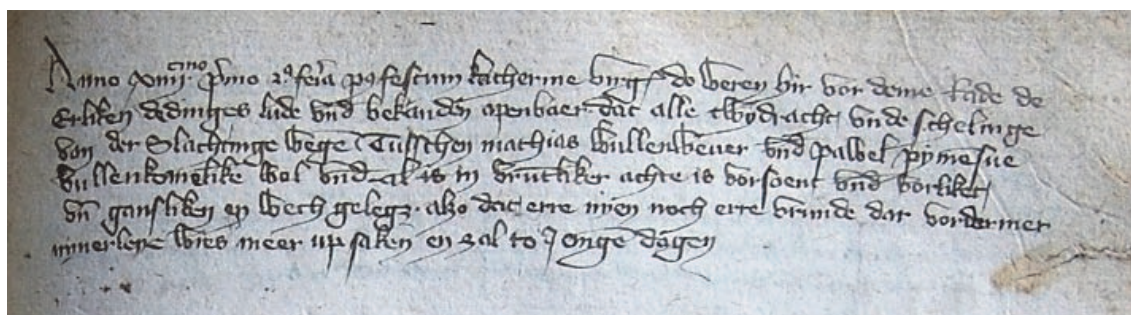 Anno xiiij cmo p̃mo 2ª fei̾a p9 festum katherine virg̃ do weren hir vor deme Rade de
Erliken dedinges lude vnd bekanden apenbaer dat alle twydracht vnde schelinge
van der Slachtinge wegẽ Tusschen mathias wullenwever vnd pawel
vullenkomelike wol vnd al is in vruntliker achte is vorsoent vnd vorliket
vñ gansliken en wech gelegt also dat erre nyen noch erre vrunde dar vordermer
wies meer up saken en zal to Jongẽ dagen